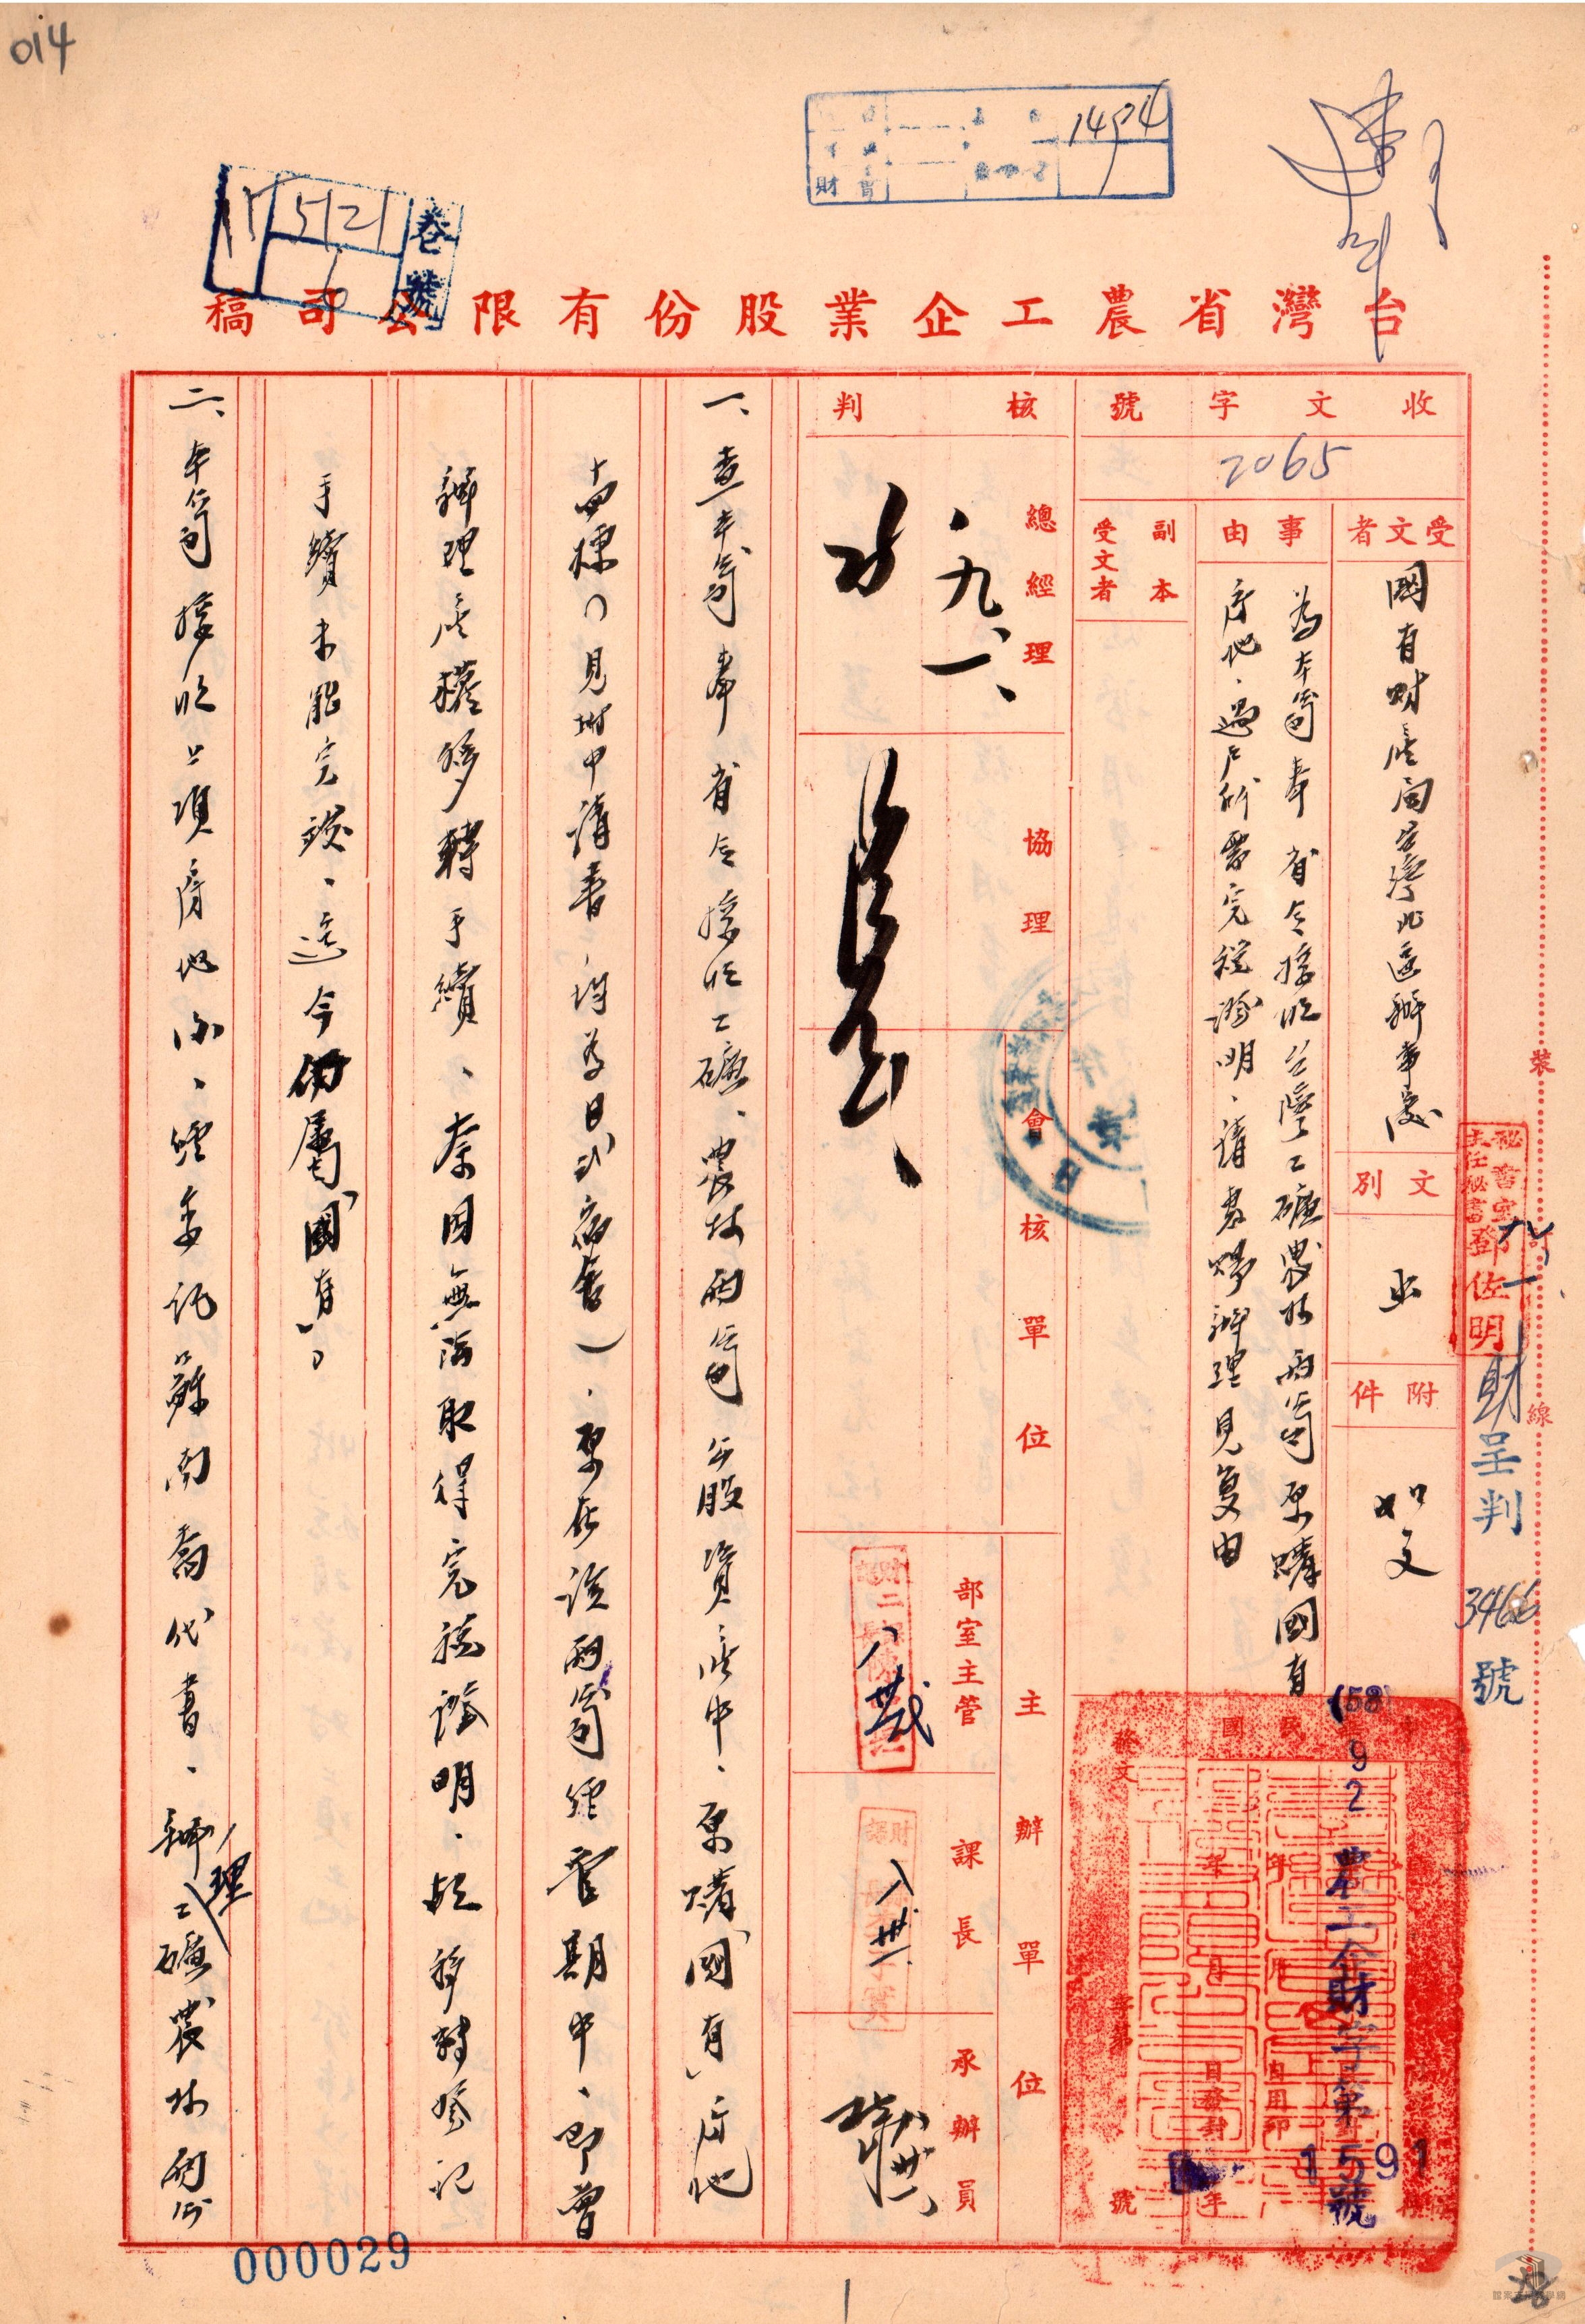 014
1494
財
卷號
15
521
台灣省農工企業股份有限公司稿
收文字號
2065
受文者
國有財產局台灣北區辦事處
文別
附件
如文
事由
為本公司奉 省令接收台灣工礦農林兩公司原購國有
房地,過戶所需完稅證明,請惠賜辦理見复由
副本受文者
核判
總經理
九、一、
協理
會核單位
主辦單位
部室主管
課長
承辦員
中華民國
(58) 9 2 農工企財字第1591號
裝
訂
線
秘書室主任秘書鄧佐明
財呈判3466號
一、查本公司奉省令接收工礦、農林兩公司公股資產中、原購「國有」房地
十四棟(見附申請書、均為日式宿舍)、原在該兩公司經管期中、即曾
辦理產權移轉手續、奈因無法取得完稅證明、故移轉登記
手續未能完竣、迄今仍屬「國有」。
二、本公司接收上項房地後、經委託蘇南喬代書、辦理工礦農林兩公
000029
1